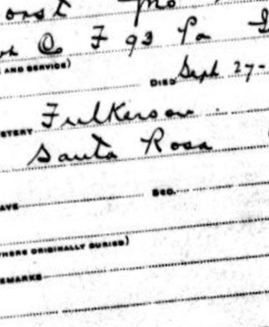 Co @ F 93 Pa I
AND SERVICE)
DIED Sept 27-
ETERY Fulkerson
Santa Rosa
AVE SEC.
WHERE ORIGINALLY BURIED)
EMARKS